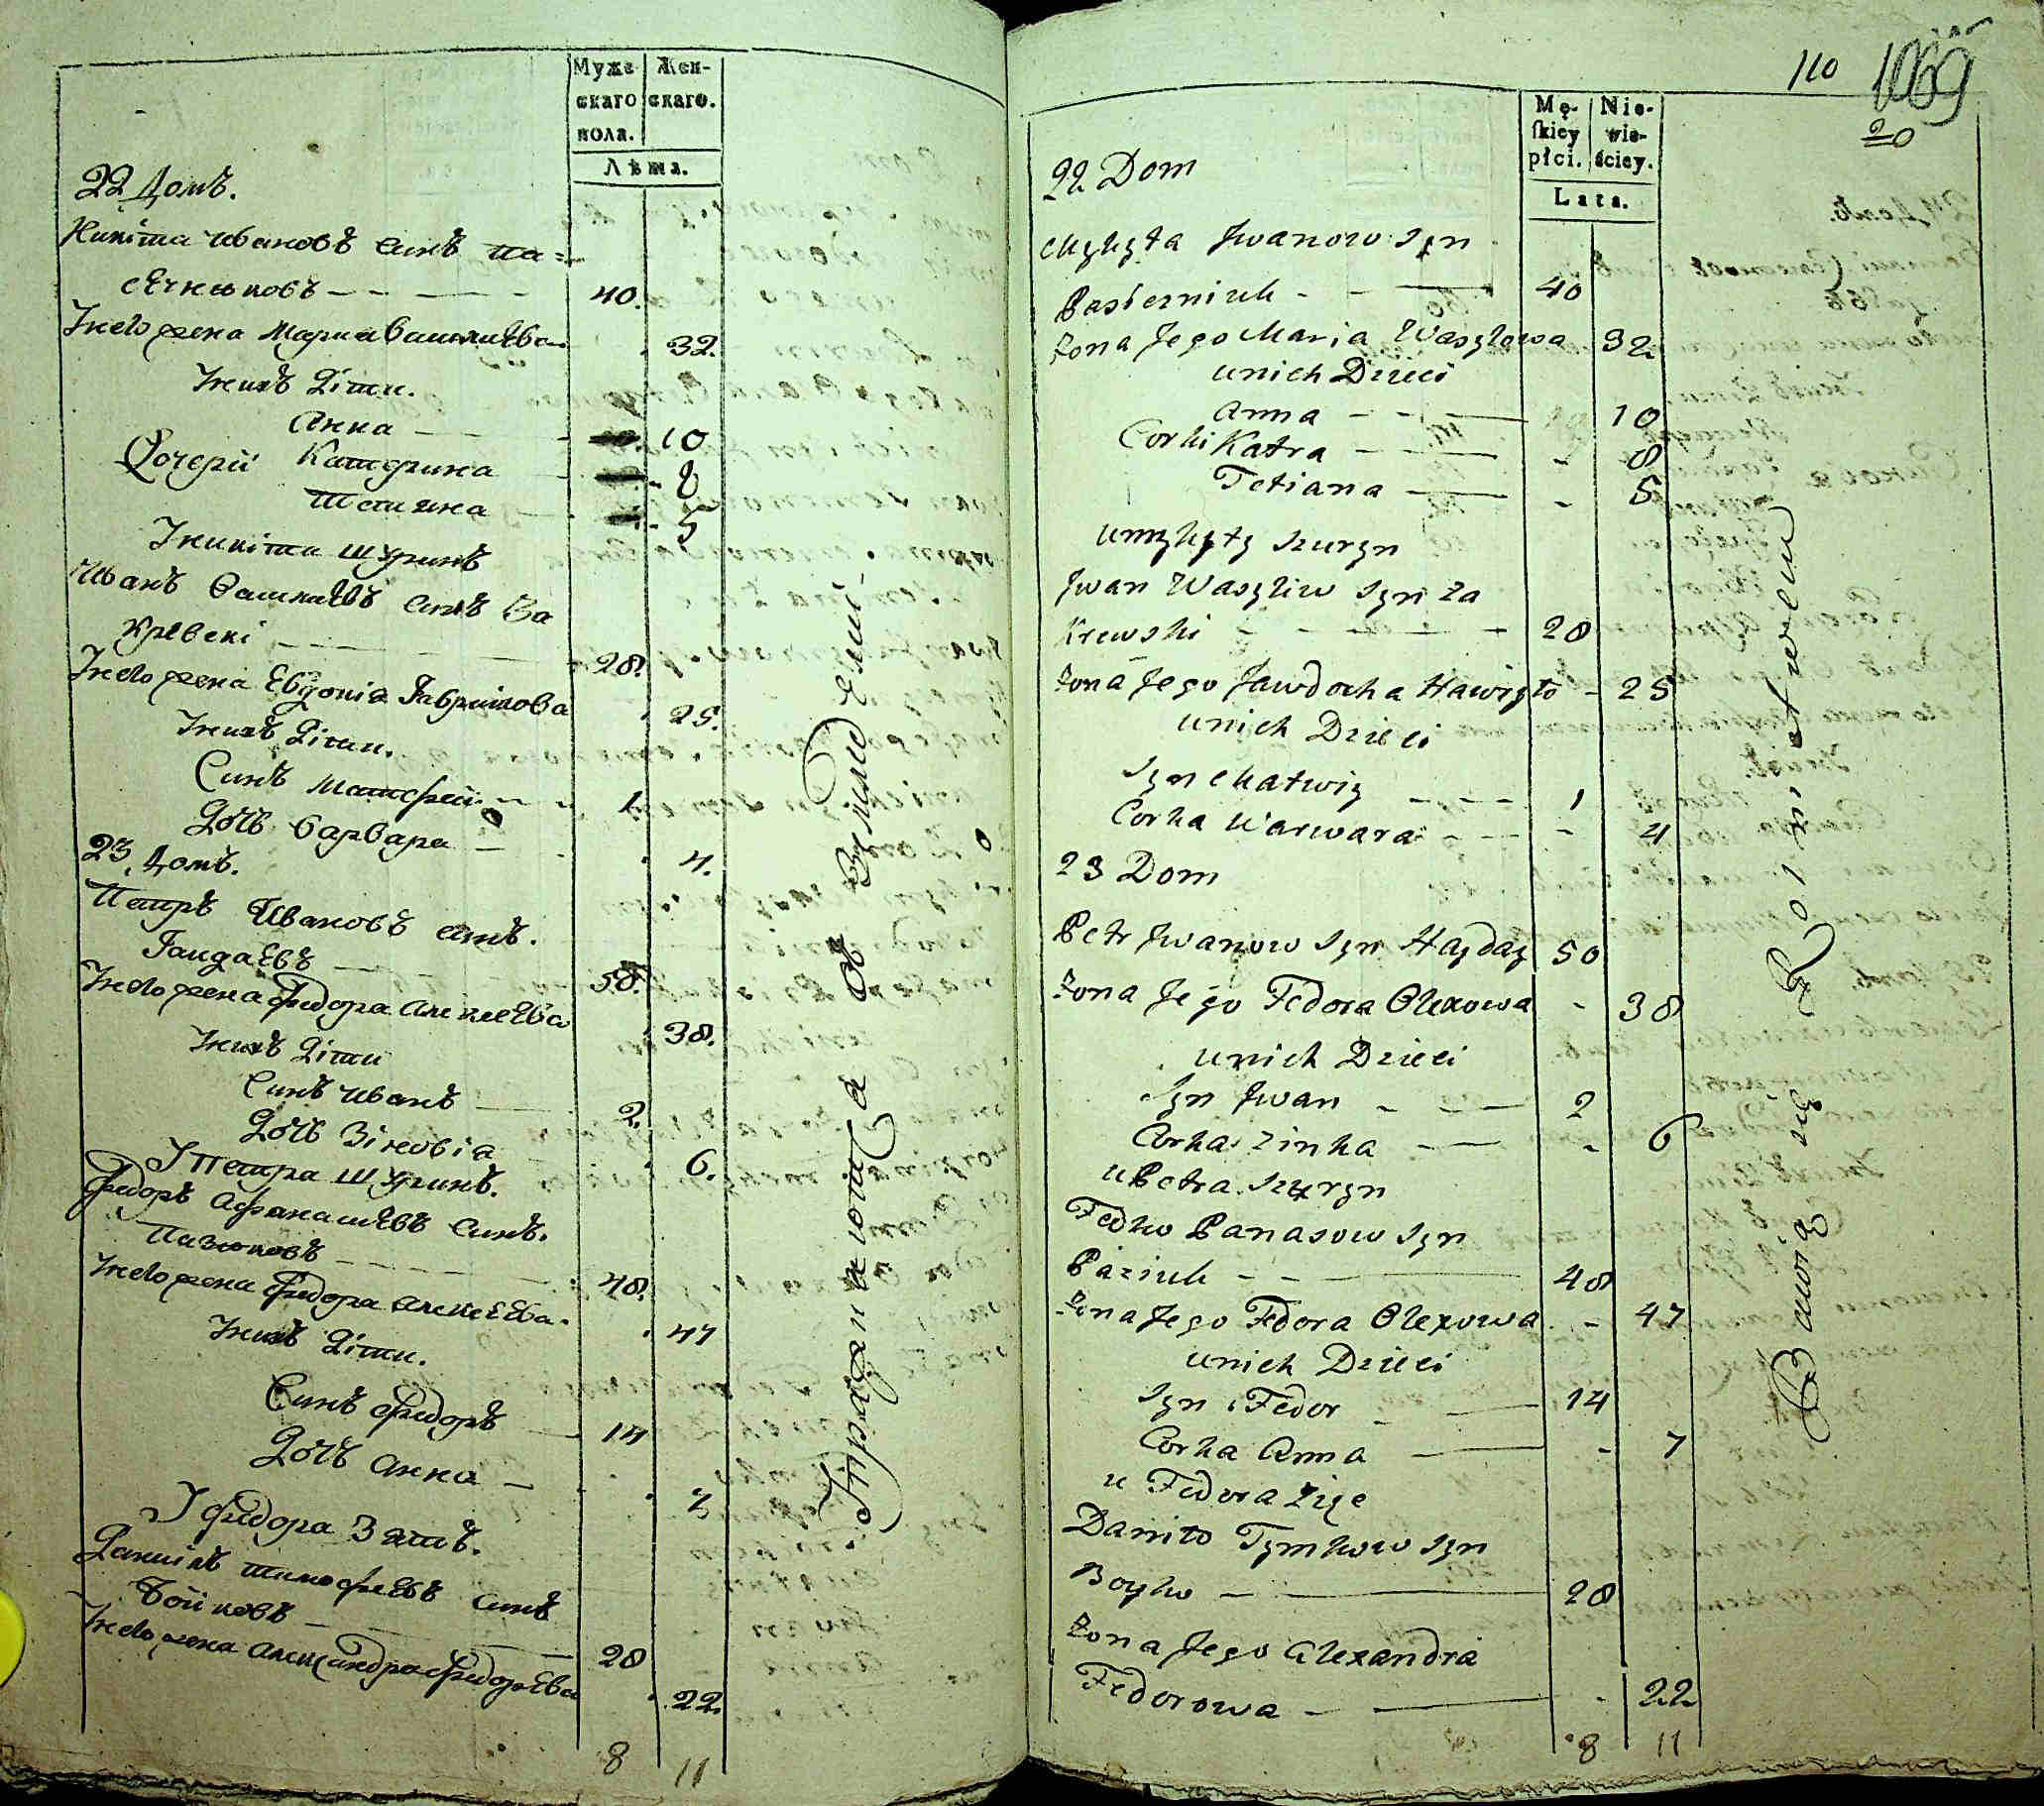 Муже
скаго
пола.
Жен-
скаго.
Лѣта.
22 Домъ.
Никита Ивановъ синъ Па=
сѣчнюковъ 40.
Унего жена Мариа Василиѣва 32.
Унихъ Дѣти.
Анна 10
Дочерѣй Катерина 8
Тетияна 5
Уникиты шуринъ
Иванъ Василиѣвъ синъ За
кревскі 28.
Унего жена Евдокія Гаврилова 25.
Унихъ Дѣти.
Синъ Матфей 1.
Дочь Варвара 4.
23 Домъ.
Петръ Ивановъ синъ.
Гайдаѣвъ 50.
Унего жена Федора Алексѣѣва 38.
Унихъ Дѣти
Синъ Иванъ 2.
Дочь Зіновіа 6.
У Петра шуринъ.
Федоръ Афанасиѣвъ синъ.
Пазюковъ 48.
Унего жена Федора Алексѣѣва. 47
Унихъ Дѣти.
Синъ Федоръ 14
Дочь Анна 7
У Федора Зять.
Данилъ Тимофѣѣвъ синъ
Бойковъ 28
Унего жена Александра Федорѣва 22.
8 11
Упражняются въ Земледелии
110 1069
20
Mę-
skiey
płci.
Nie-
wie-
ściey.
Lata.
22 Dom
Mykyta Jwanow Syn
Pasieczniuk 40
żona Jego Maria Wasylowa 32
unich Dzieci
Anna 10
Corki Katra 8
Tetiana 5
umykyty szuryn
Jwan Wasyliw Syn Za
krewski 28
żona Jego Jawdocha Hawryło 25
unich Dzieci
Syn Matwiy 1
Corka Warwara 4
23 Dom
Petr Jwanow Syn Hayday 50
żona Jego Fedora Olexowa 38
unich Dzieci
Syn Jwan 2
Corka Zinka 6
u Petra szuryn
Fedko Panasow Syn
Paziuk 48
żona Jego Fedora Olexowa 47
unich Dzieci
Syn Fedor 14
Corka Anna 7
u Fedora Zięc
Daniło Tymkow Syn
Boyko 28
żona Jego Alexandra
Fedorowa 22
8 11
Bawią się Rolnictwem